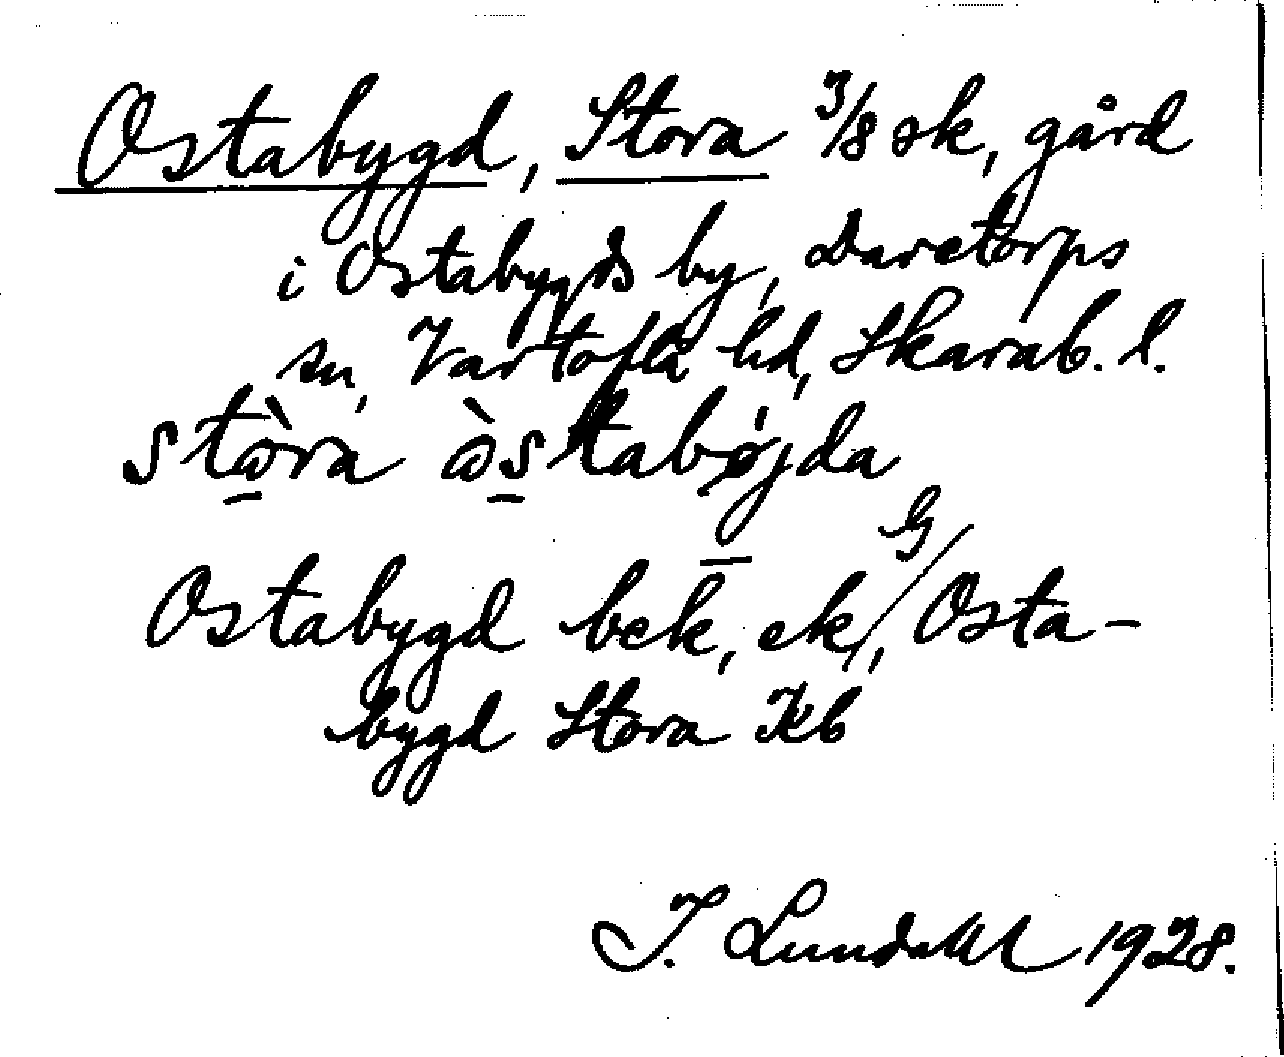 Ostabygd, Stora 3/8 sk, gård
i Ostabygds by, Daretorps
sn, Vartofta hd, Skarab. l.
stòra òstabǿjda
Ostabygd bek, ek, G Osta-
bygd Stora Kb
I. Lundahl 1928.